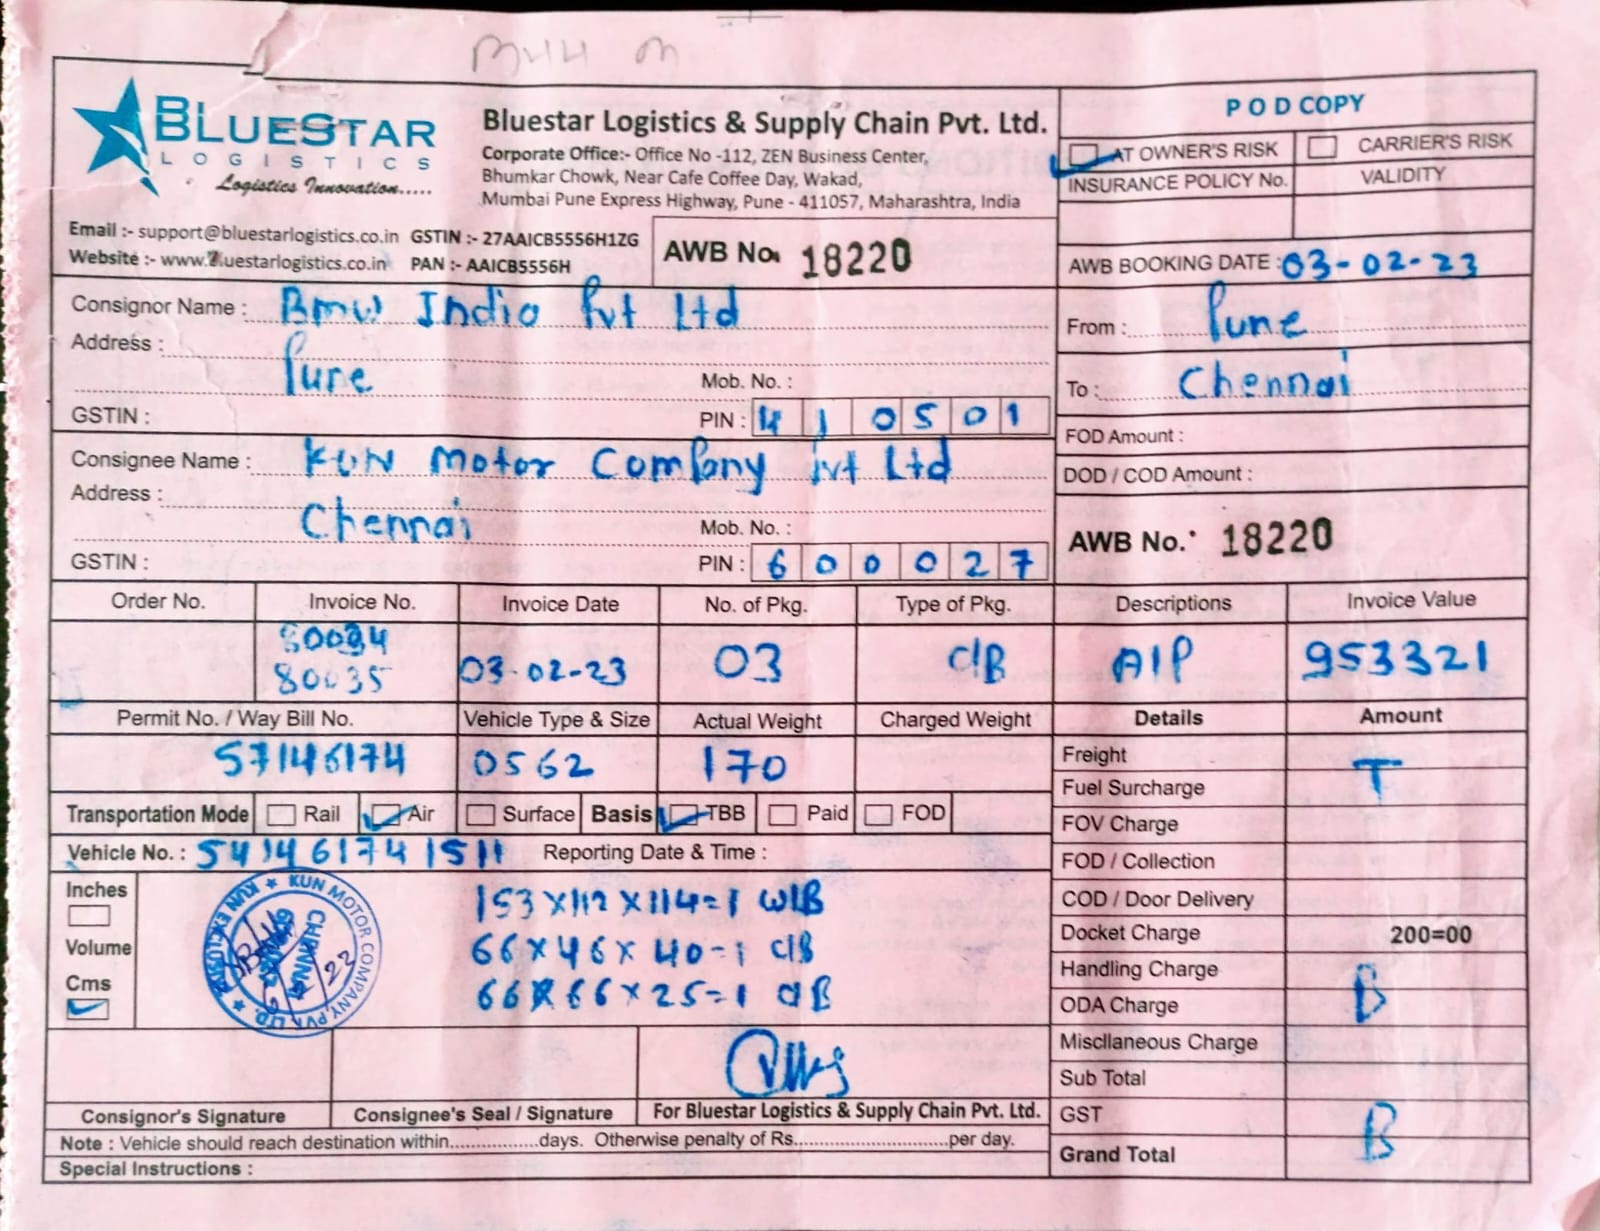 BLUESTAR
LOGISTICS
Logistics Innovation.....
Bluestar Logistics & Supply Chain Pvt. Ltd.
Corporate Office:- Office No -112, ZEN Business Center,
Bhumkar Chowk, Near Cafe Coffee Day, Wakad,
Mumbai Pune Express Highway, Pune - 411057, Maharashtra, India
Email :- support@bluestarlogistics.co.in GSTIN :- 27AAICB5556H1ZG
Website :- www.bluestarlogistics.co.in PAN :- AAICB5556H
AWB No. 18220
P O D COPY
AT OWNER'S RISK CARRIER'S RISK
INSURANCE POLICY No. VALIDITY
AWB BOOKING DATE : 03-02-23
Consignor Name : BMW India Pvt Ltd
Address : Pune
Mob. No. :
GSTIN : PIN : 410501
From : Pune
To : Chennai
FOD Amount :
DOD / COD Amount :
Consignee Name : KUN Motor Company Pvt Ltd
Address : Chennai
Mob. No. :
GSTIN : PIN : 600027
AWB No. 18220
Order No. Invoice No. Invoice Date No. of Pkg. Type of Pkg. Descriptions Invoice Value
80034
80035 03-02-23 03 C/B A/P 953321
Permit No. / Way Bill No. Vehicle Type & Size Actual Weight Charged Weight Details Amount
57146174 0562 170
Transportation Mode Rail Air Surface Basis TBB Paid FOD
Vehicle No. : 541461741511 Reporting Date & Time :
Inches
Volume
Cms
153x112x114=1 W/B
66x46x40=1 C/B
66x66x25=1 C/B
KUN MOTOR COMPANY, PVT. LTD. ★ KUN EXCLUSIVE ★
CHENNAI
Freight
T
Fuel Surcharge
FOV Charge
FOD / Collection
COD / Door Delivery
Docket Charge 200=00
Handling Charge
B
ODA Charge
Miscllaneous Charge
Sub Total
GST
B
Grand Total
Consignor's Signature Consignee's Seal / Signature For Bluestar Logistics & Supply Chain Pvt. Ltd.
Note : Vehicle should reach destination within................days. Otherwise penalty of Rs............................per day.
Special Instructions :